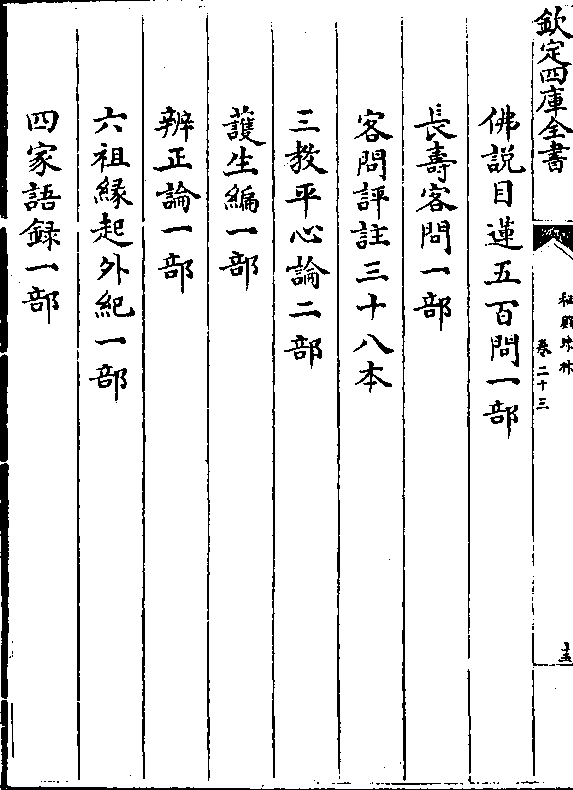 欽定四庫全書
秘殿珠林
卷二十三
十五
佛說目蓮五百問一部
長壽客問一部
客問評註三十八本
三教平心論二部
護生編一部
辨正論一部
六祖緣起外紀一部
四家語録一部